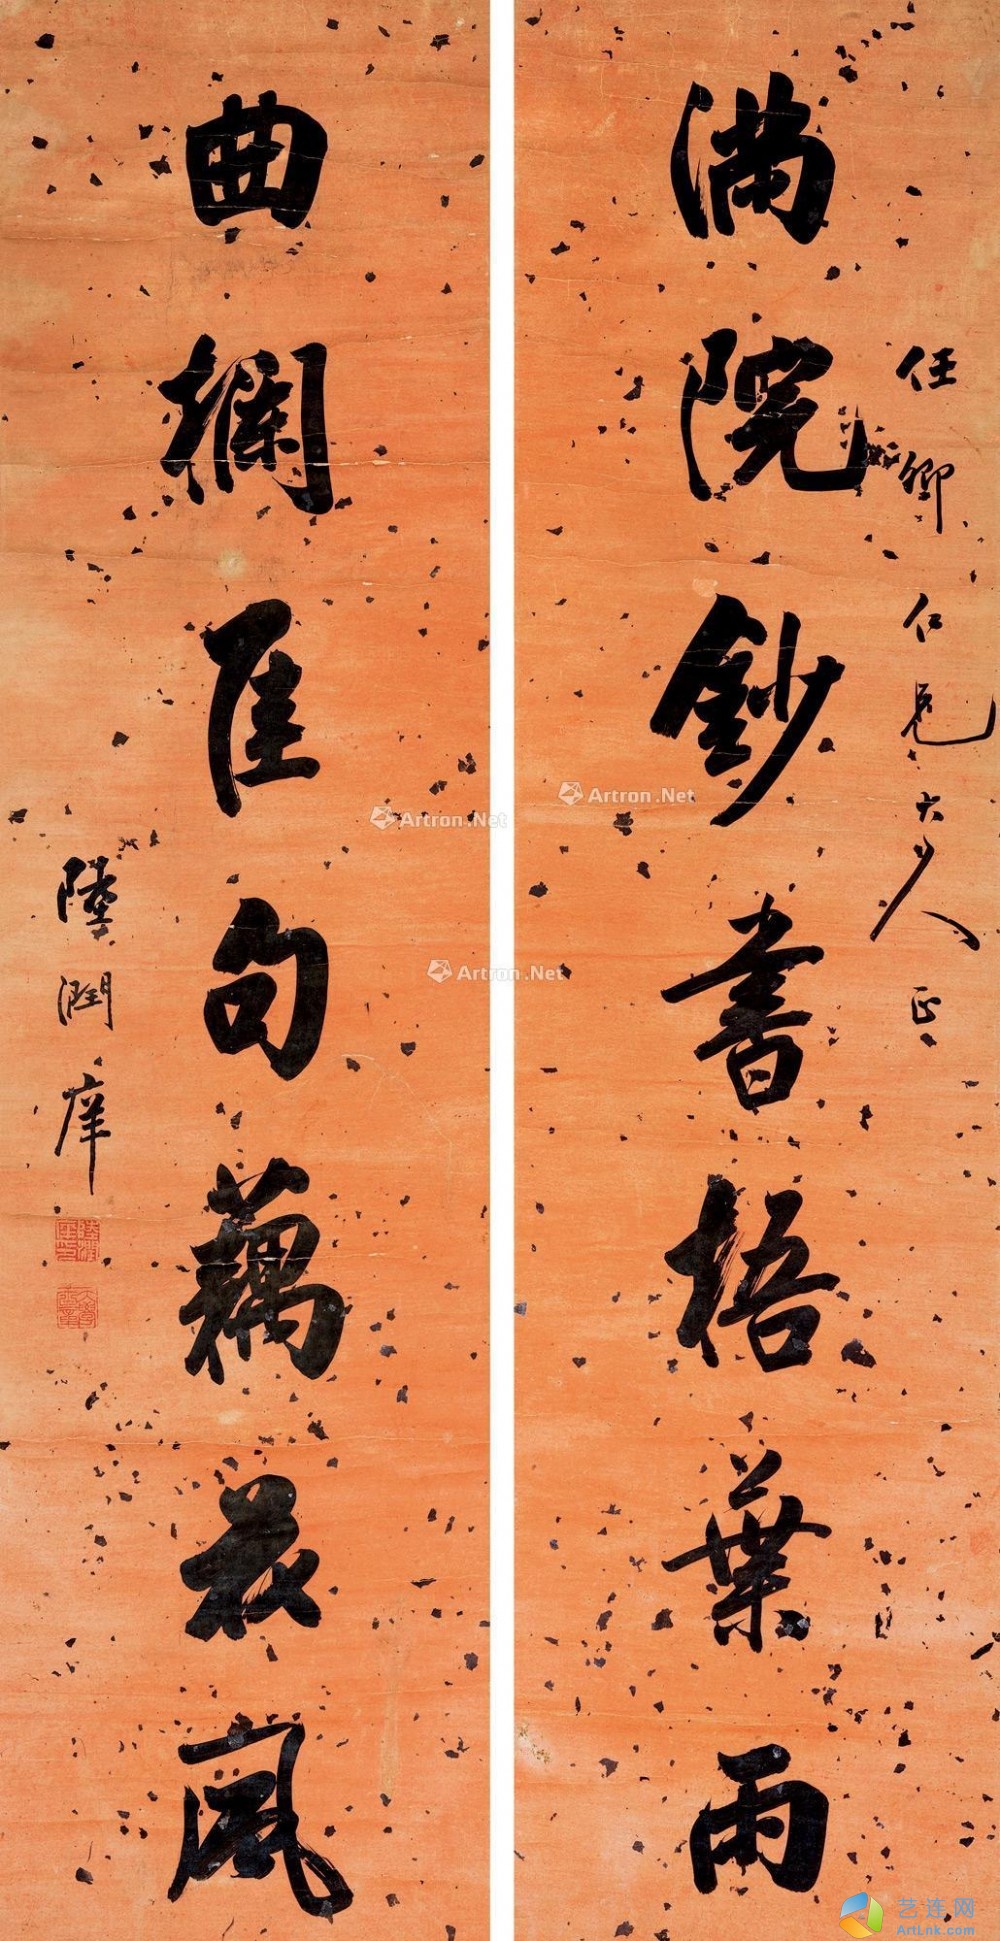 任卿仁兄大人正
滿院鈔書梧葉雨
曲欄佳句藕花風
陸潤庠
Artron.Net
Artron.Net
Artron.Net
艺连网
ArtLnk.com